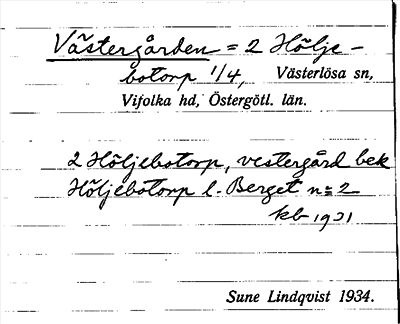 Västergården = 2 Hölje-
botorp 1/4, Västerlösa sn,
Vifolka hd, Östergötl. län.
2 Höljebotorp, vestergård bek
Höljebotorp l. Berget n = 2
kb 1921
Sune Lindqvist 1934.